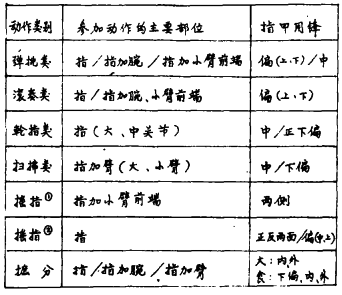 动作类别 参加动作的主要部位 指甲用锋
弹挑类 指/指加腕/指加小臂前端 偏(上、下)/中
滚奏类 指/指加腕、小臂前端 偏(上、下)
轮指类 指(大、中关节) 中/正下偏
扫拂类 指加臂(大、小臂) 中/下偏
摇指① 指加小臂前端 两侧
摇指② 指 正反两面/偏(中上)
摭 分 指/指加腕/指加臂 大:内外
食:下偏、内、外